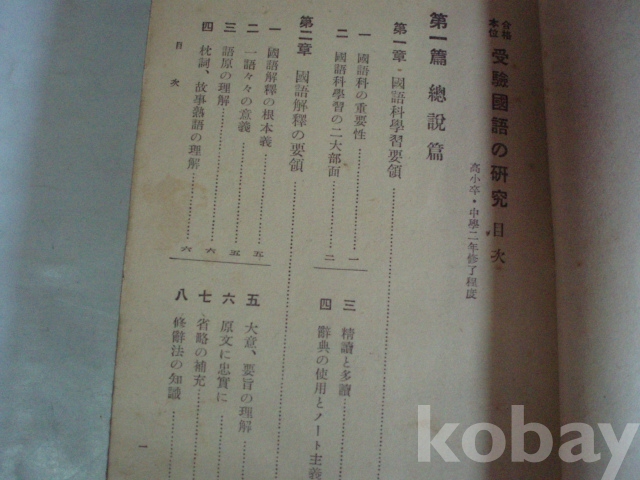 合格本位 受驗國語の研究 目次
高小卒・中學二年修了程度
第一篇 總說篇
第一章・國語科學習要領
一 國語科の重要性 一
二 國語科學習の二大部面 二
三 精讀と多讀
四 辭典の使用とノート主義
第二章 國語解釋の要領
一 國語解釋の根本義 五
二 一語々々の意義 五
三 語原の理解 六
四 枕詞、故事熟語の理解 六
五 大意、要旨の理解
六 原文に忠實に
七 省略の補充
八 修辭法の知識
目次
一
kobay